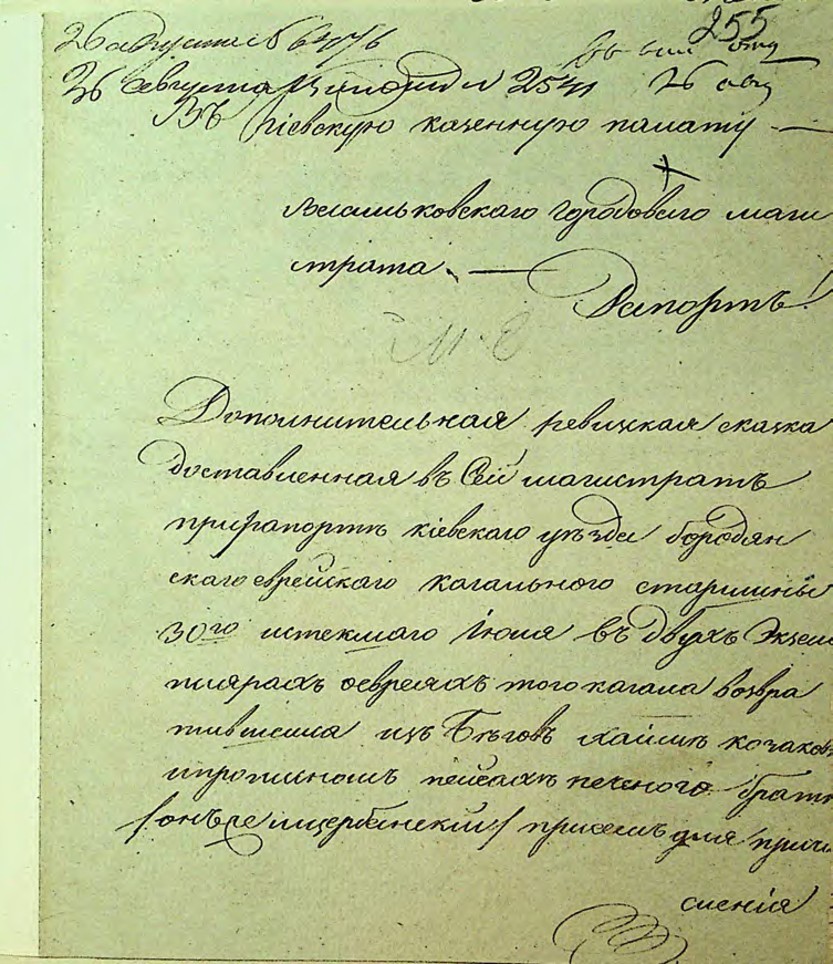 255
26 августа № 6476
26 августа № 2541 26 авг
Въ Кіевскую казенную палату —
Васильковскаго городоваго маги
страта. —
Рапортъ!
Дополнительная ревизкая сказка
доставленная въ Сей магистратъ
при рапортъ кіевскаго уѣзда бородян
скаго еврейскаго кагальнаго старшины
30го истекшаго Іюля въ двухъ Экзем
плярахъ оевреяхъ того кагала возвра
тившемся изъ Бѣговъ Хаимѣ козаков
ипропиломъ пейсахѣ печеного братѣ
/онъ же щербинскій/ присемъ для причи
сленія